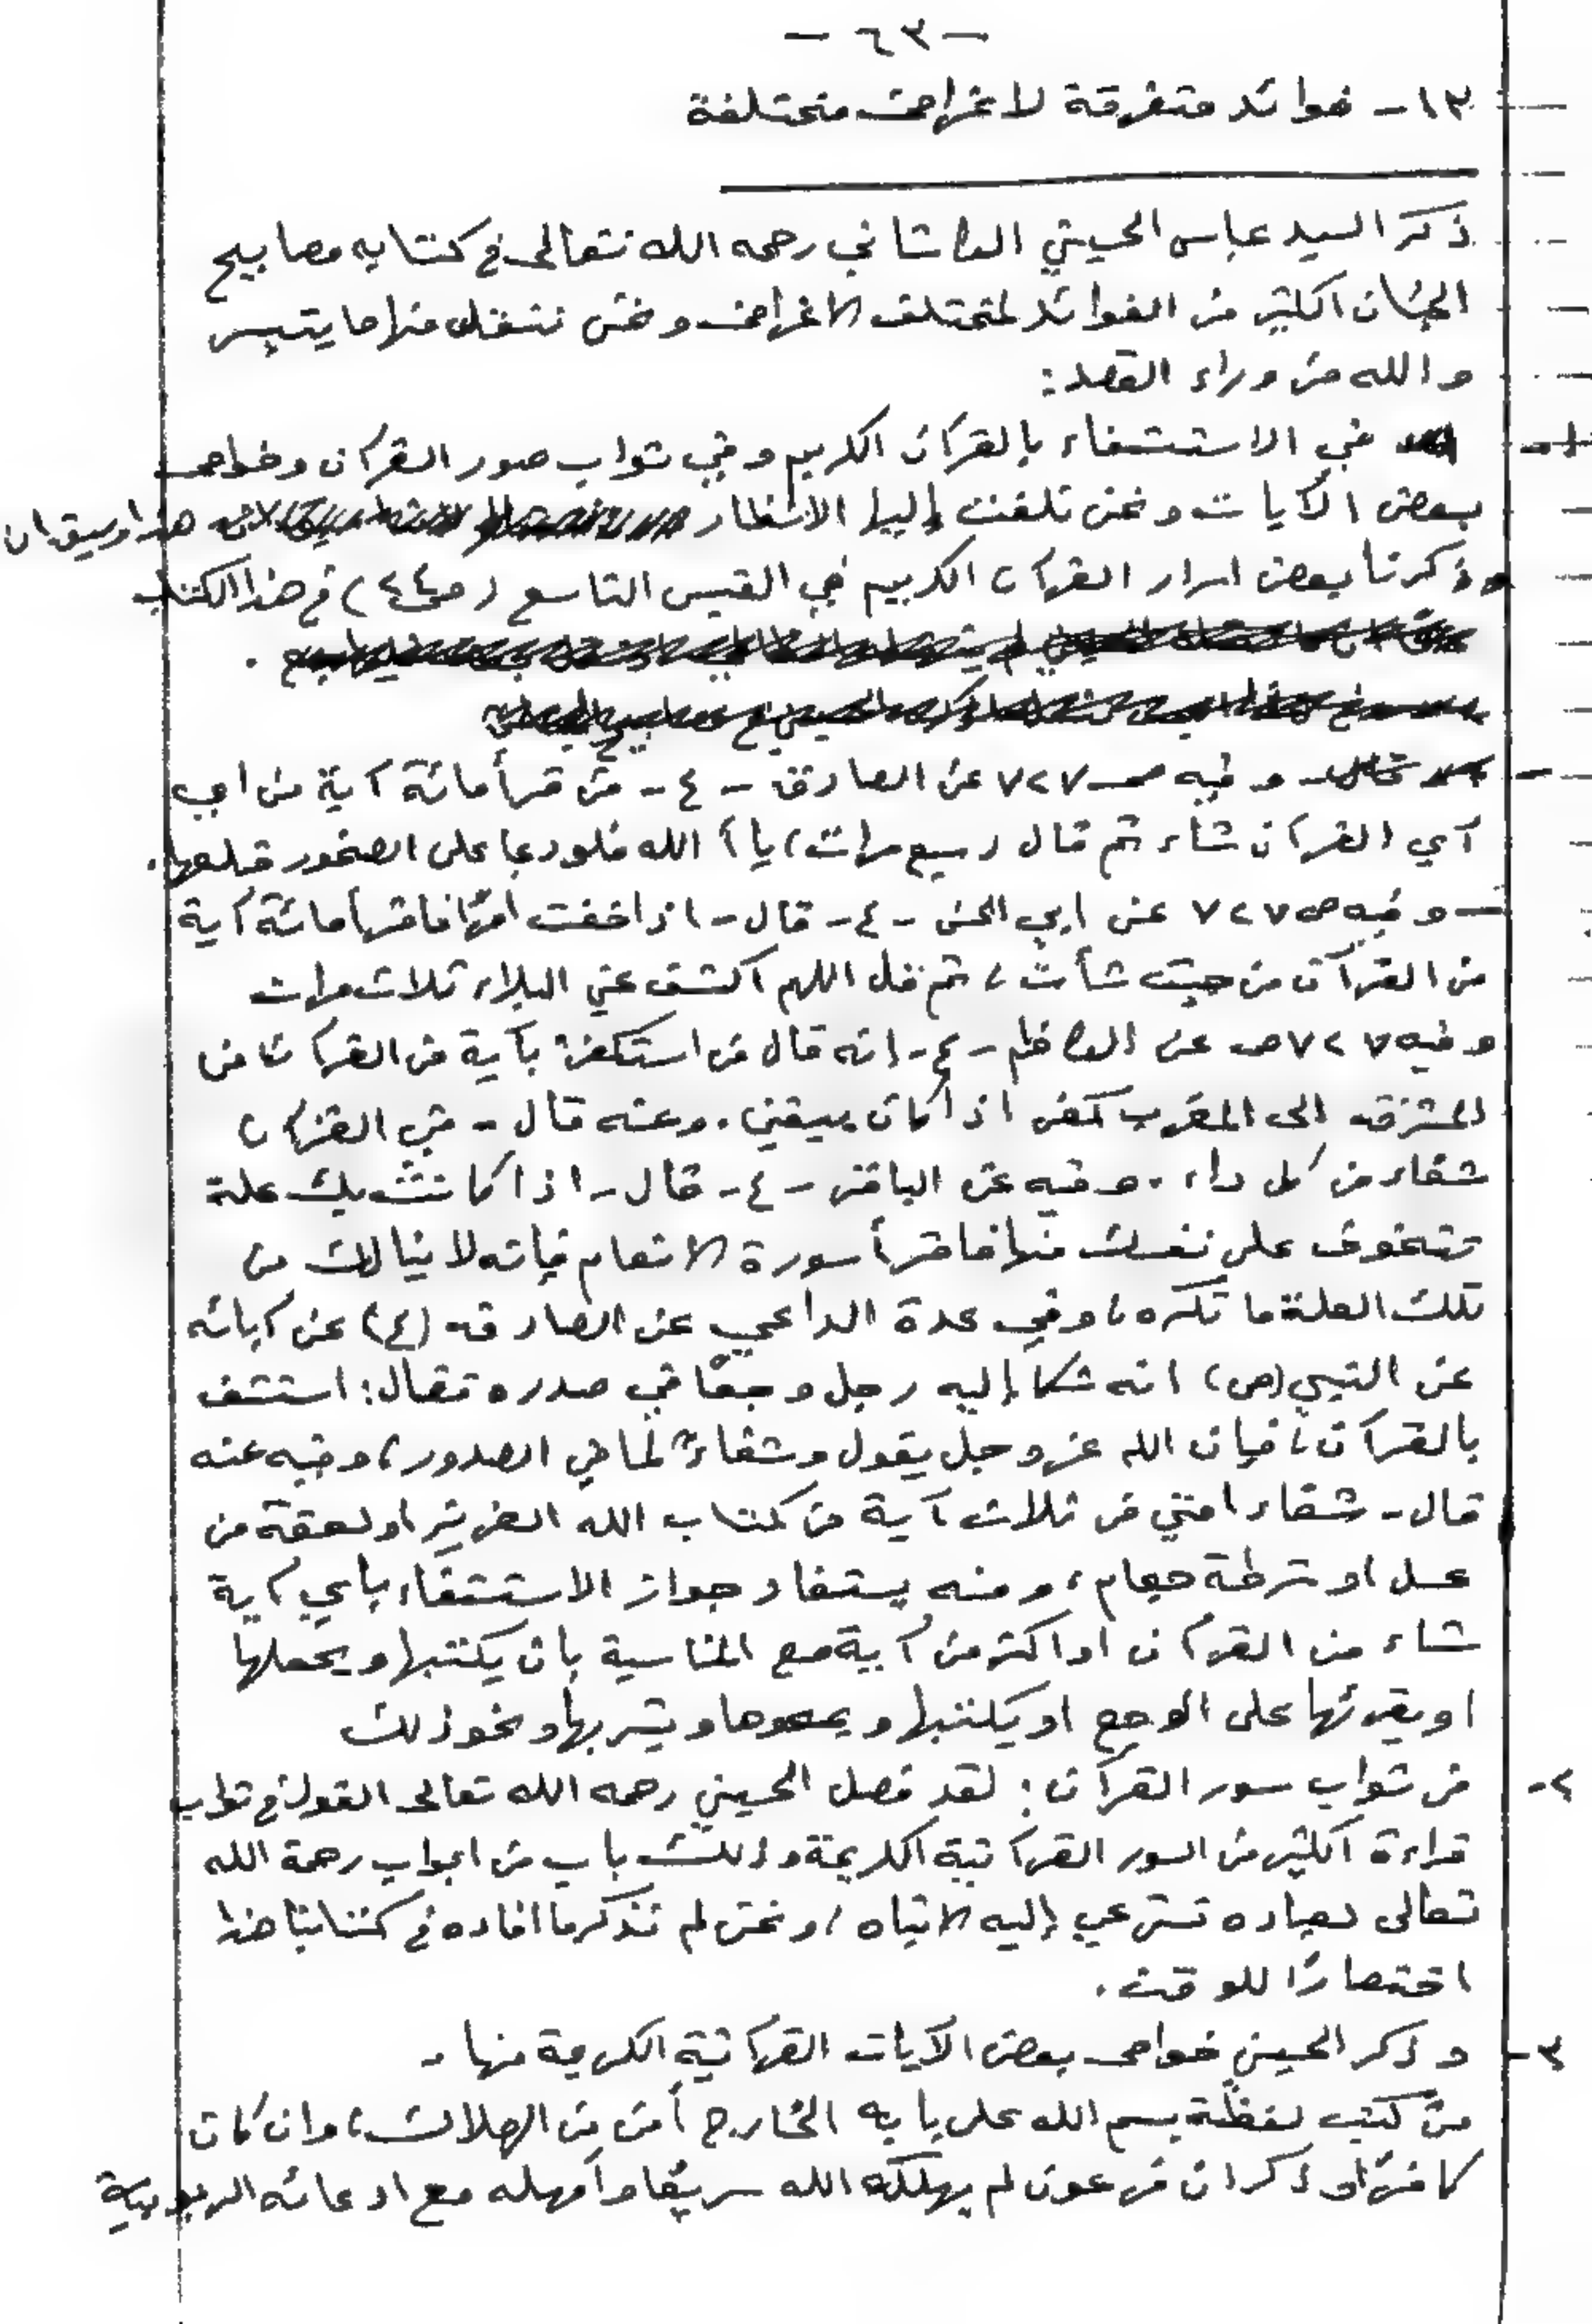 - ٦٣ -
١٣- فوائد متفرقة لاغراض مختلفة
ذكر السيد عباس الحسيني الكاشاني رحمه الله تعالى في كتابه مصابيح
الجنان الكثير من الفوائد لمختلف الاغراض ونحن ننقل منها ما يتيسر
والله من وراء القصد:
١- في الاستشفاء بالقرآن الكريم وفي ثواب صور القرآن وخواص
بعض الآيات ونحن نلفت إليها الانظار هذا وسبق ان
وذكرنا بعض اسرار القرآن الكريم في القبس التاسع (ص٤٤) في هذا الكتاب
- وفيه صـ ٧٢٧ عن الصادق -ع- من قرأ مائة آية من اي
آي القرآن شاء ثم قال (سبع مرات) يا أ الله فلو دعا على الصخور قلعها.
- وفيه ص ٧٢٧ عن ابي الحسن -ع- قال- اذا خفت امرًا فاقرأ مائة آية
من القرآن من حيث شأت، ثم قل اللهم اكشف عني البلاء ثلاث مرات
وفيه ٧٢٧ ص عن الكاظم -ع- انه قال من استكفى بآية من القرآن من
المشرق الى المغرب كفى اذا كان بيقين. وعنه قال- في القرآن
شفاء من كل داء. وفيه عن الباقر -ع- قال- اذا كانت بك علة
تتخوف على نفسك منها فاقرأ سورة الانعام فإنه لا ينالك من
تلك العلة ما تكره، وفي عدة الداعي عن الصادق (ع) عن آبائه
عن النبي (ص) انه شكا إليه رجل وجعًا في صدره فقال: استشف
بالقرآن، فإن الله عز وجل يقول وشفاءٌ لما في الصدور، وفيه عنه
قال- شفاء امتي في ثلاث آية من كتاب الله العزيز او لعقة من
عسل او شرطة حجام، ومنه يستفاد جواز الاستشفاء بأي آية
شاء من القرآن او اكثر من آية مع المناسبة بأن يكتبها ويحملها
او يقرئها على الوجع او يكتبها ويمحوها ويشربها ونحو ذلك
٢- في ثواب سور القرآن: لقد فصل الحسيني رحمه الله تعالى القول في ثواب
قراءة الكثير من السور القرآنية الكريمة وذلك باب من ابواب رحمة الله
تعالى لعباده تسترعي إليه الانتباه، ونحن لم نذكر ما افاده في كتابنا هذا
اختصارًا للوقت.
٣- وذكر الحسيني خواص بعض الآيات القرآنية الكريمة منها-
من كتب لفظة بسم الله على بابه الخارج أمن من الهلاك، وان كان
كافرًا وذكر ان فرعون لم يهلكه الله سريعًا وأمهله مع ادعائه الربوبية